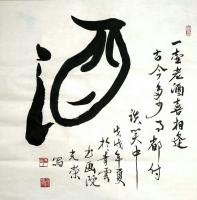 酒
一壶老酒喜相逢
古今多少事都付
谈笑中
戊戌年夏
於青云
书画院
光荣
写